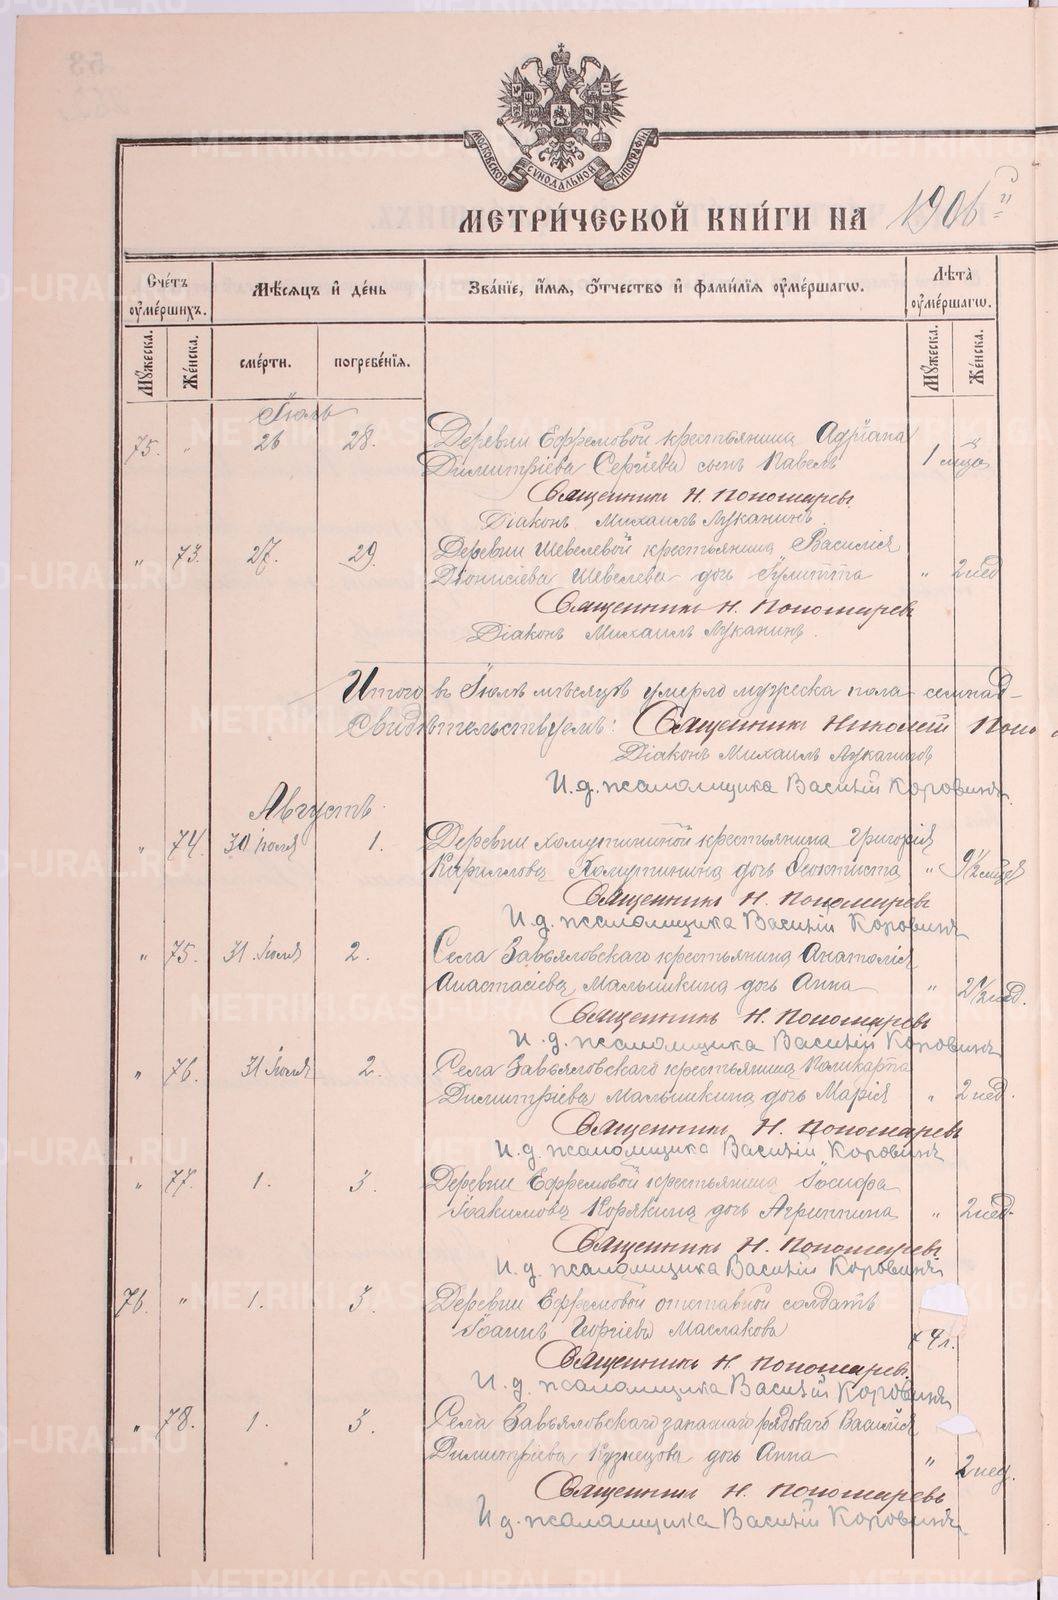 МОСКОВСКОЙ СѴНОДАЛЬНОЙ ТИПОГРАФІИ
МЕТРИ́ЧЕСКОЙ КНИ́ГИ НА 1906 й
Счётъ оу҆ме́ршихъ.
Мѣ́сяцъ и҆ де́нь
Зва́нїе, и҆́мѧ, ѻ҆́тчество и҆ фами́лїѧ оу҆ме́ршагѡ.
Лѣ́та оу҆ме́ршагѡ.
Мꙋ́жеска.
Же́нска.
сме́рти.
погребе́нїѧ.
Мꙋ́жеска.
Же́нска.
Іюль
75. " 26 28. Деревни Ефремовой крестьянина Адріана
Димитріева Сергіева сынъ Павелъ 1 мѣс.
Священникъ Н. Пономаревъ
Діаконъ Михаилъ Луканинъ.
" 73. 27. 29. Деревни Шевелевой крестьянина Василія
Діонисіева Шевелева дочь Іулитта " 2 нед
Священникъ Н. Пономаревъ
Діаконъ Михаилъ Луканинъ.
Итого въ Іюлѣ мѣсяцѣ умерло мужеска пола семнад-
Свидѣтельствуемъ: Священникъ Николай Поно
Діаконъ Михаилъ Луканинъ
И. д. псаломщика Василій Коровинъ.
Августъ.
" 74. 30 Іюля 1. Деревни Хомутининой крестьянина Григорія
Кириллова Хомутинина дочь Ѳеоктиста "
Священникъ Н. Пономаревъ
И. д. псаломщика Василій Коровинъ
" 75. 31 Іюля 2. Села Завьяловскаго крестьянина Анатолія
Анастасіева Малышкина дочь Анна " 2 1/2 нед.
Священникъ Н. Пономаревъ
И. д. псаломщика Василій Коровинъ
" 76. 31 Іюля 2. Села Завьяловскаго крестьянина Поликарпа
Димитріева Малышкина дочь Марія " 2 нед.
Священникъ Н. Пономаревъ
И. д. псаломщика Василій Коровинъ
" 77. 1. 3. Деревни Ефремовой крестьянина Іосифа
Іоакимова Корякина дочь Агриппина " 2 нед.
Священникъ Н. Пономаревъ
И. д. псаломщика Василій Коровинъ
76. " 1. 3. Деревни Ефремовой отставной солдатъ
Іоаннъ Георгіевъ Маслаковъ 4 г.
Священникъ Н. Пономаревъ.
И. д. псаломщика Василій Коровинъ
" 78. 1. 3. Села Завьяловскаго запаснаго рядоваго Василія
Димитріева Кузнецова дочь Анна " 2 нед.
Священникъ Н. Пономаревъ
И. д. псаломщика Василій Коровинъ
METRIKI.GASO-URAL.RU